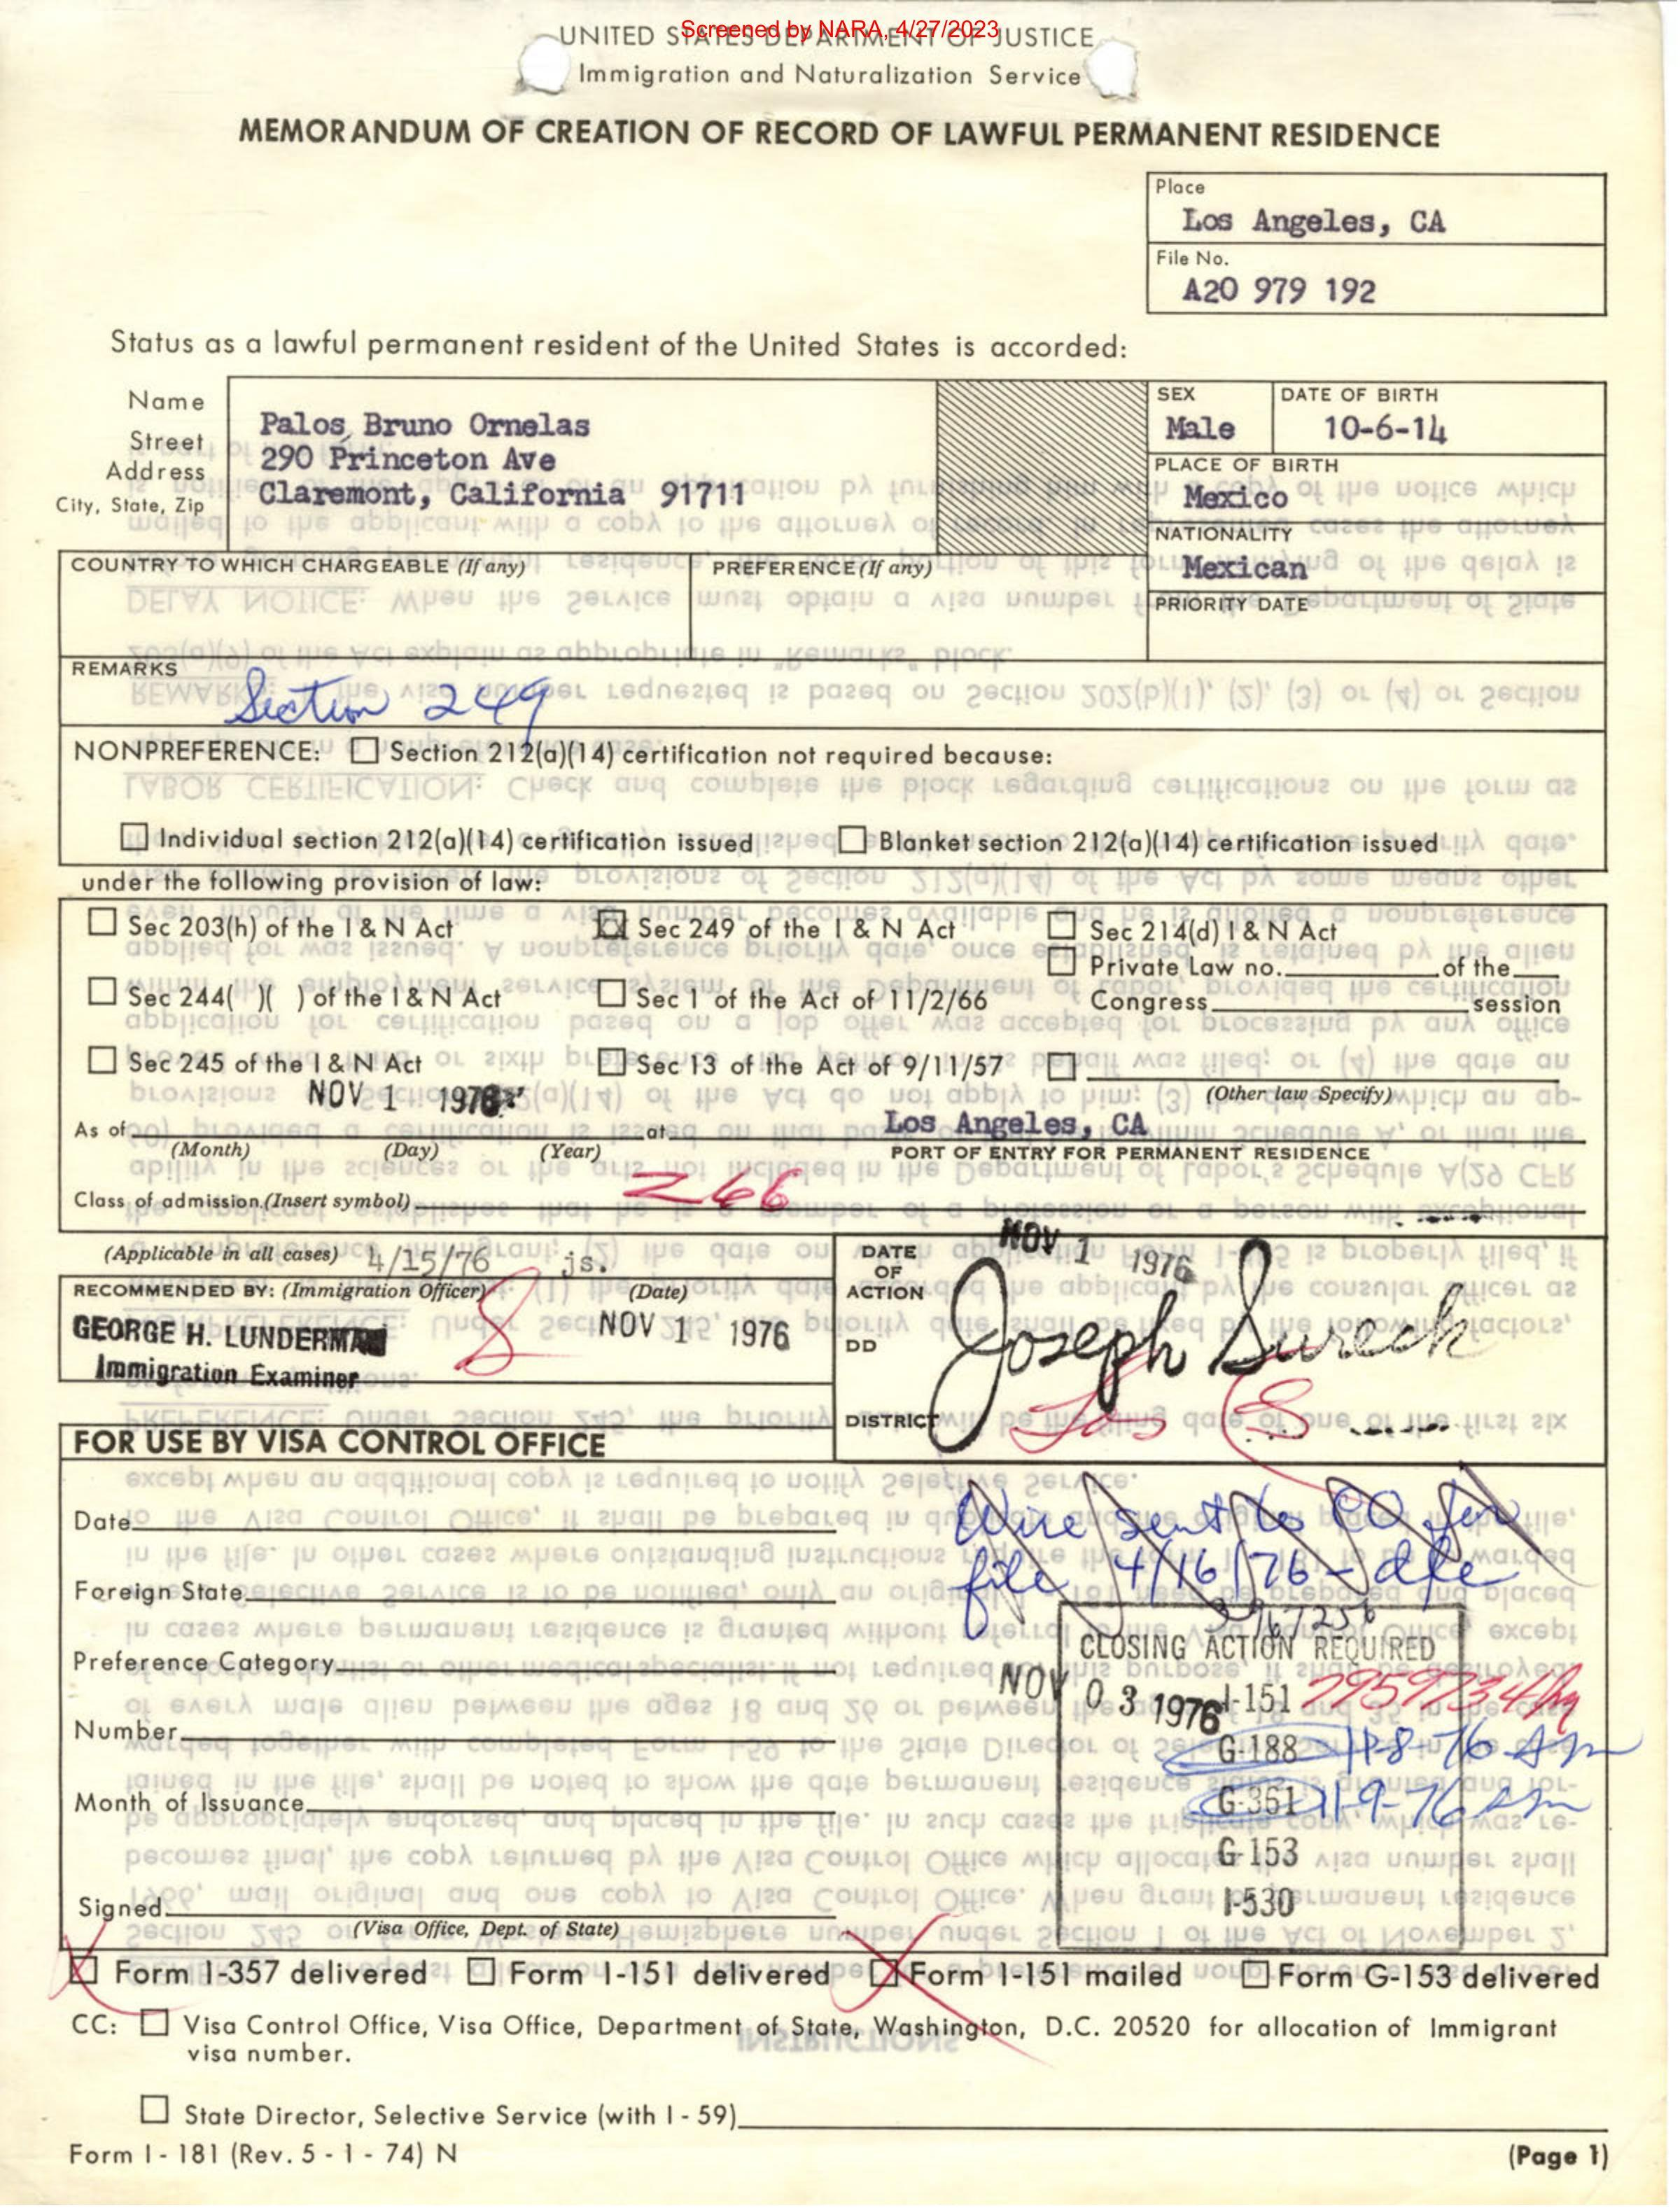 Screened by NARA, 4/27/2023
UNITED STATES DEPARTMENT OF JUSTICE
Immigration and Naturalization Service
MEMORANDUM OF CREATION OF RECORD OF LAWFUL PERMANENT RESIDENCE
Place
Los Angeles, CA
File No.
A20 979 192
Status as a lawful permanent resident of the United States is accorded:
Name
Street
Address
City, State, Zip
Palos, Bruno Ornelas
290 Princeton Ave
Claremont, California 91711
SEX
Male
DATE OF BIRTH
10-6-14
PLACE OF BIRTH
Mexico
NATIONALITY
Mexican
PRIORITY DATE
COUNTRY TO WHICH CHARGEABLE (If any)
PREFERENCE (If any)
REMARKS
Section 249
NONPREFERENCE: ☐ Section 212(a)(14) certification not required because:
☐ Individual section 212(a)(14) certification issued ☐ Blanket section 212(a)(14) certification issued
under the following provision of law:
☐ Sec 203(h) of the I & N Act ☒ Sec 249 of the I & N Act ☐ Sec 214(d) I & N Act
☐ Private Law no. of the
☐ Sec 244( )( ) of the I & N Act ☐ Sec 1 of the Act of 11/2/66 Congress session
☐ Sec 245 of the I & N Act ☐ Sec 13 of the Act of 9/11/57 ☐
(Other law Specify)
NOV 1 1976
As of at Los Angeles, CA
(Month) (Day) (Year) PORT OF ENTRY FOR PERMANENT RESIDENCE
Class of admission (Insert symbol) Z66
(Applicable in all cases) 4/15/76 js.
RECOMMENDED BY: (Immigration Officer) (Date)
GEORGE H. LUNDERMAN NOV 1 1976
Immigration Examiner
DATE
OF
ACTION
NOV 1 1976
DD
Joseph Sureck
DISTRICT
Los
FOR USE BY VISA CONTROL OFFICE
Date
Foreign State
Preference Category
Number
Month of Issuance
Signed
(Visa Office, Dept. of State)
Wire sent to CO for
file 4/16/76 -
CLOSING ACTION REQUIRED
NOV 03 1976
I-151
G-188 11-8-76
G-361 11-9-76
G-153
I-530
☒ Form I-357 delivered ☐ Form I-151 delivered ☒ Form I-151 mailed ☐ Form G-153 delivered
CC: ☐ Visa Control Office, Visa Office, Department of State, Washington, D.C. 20520 for allocation of Immigrant
visa number.
☐ State Director, Selective Service (with I - 59)
Form I - 181 (Rev. 5 - 1 - 74) N
(Page 1)